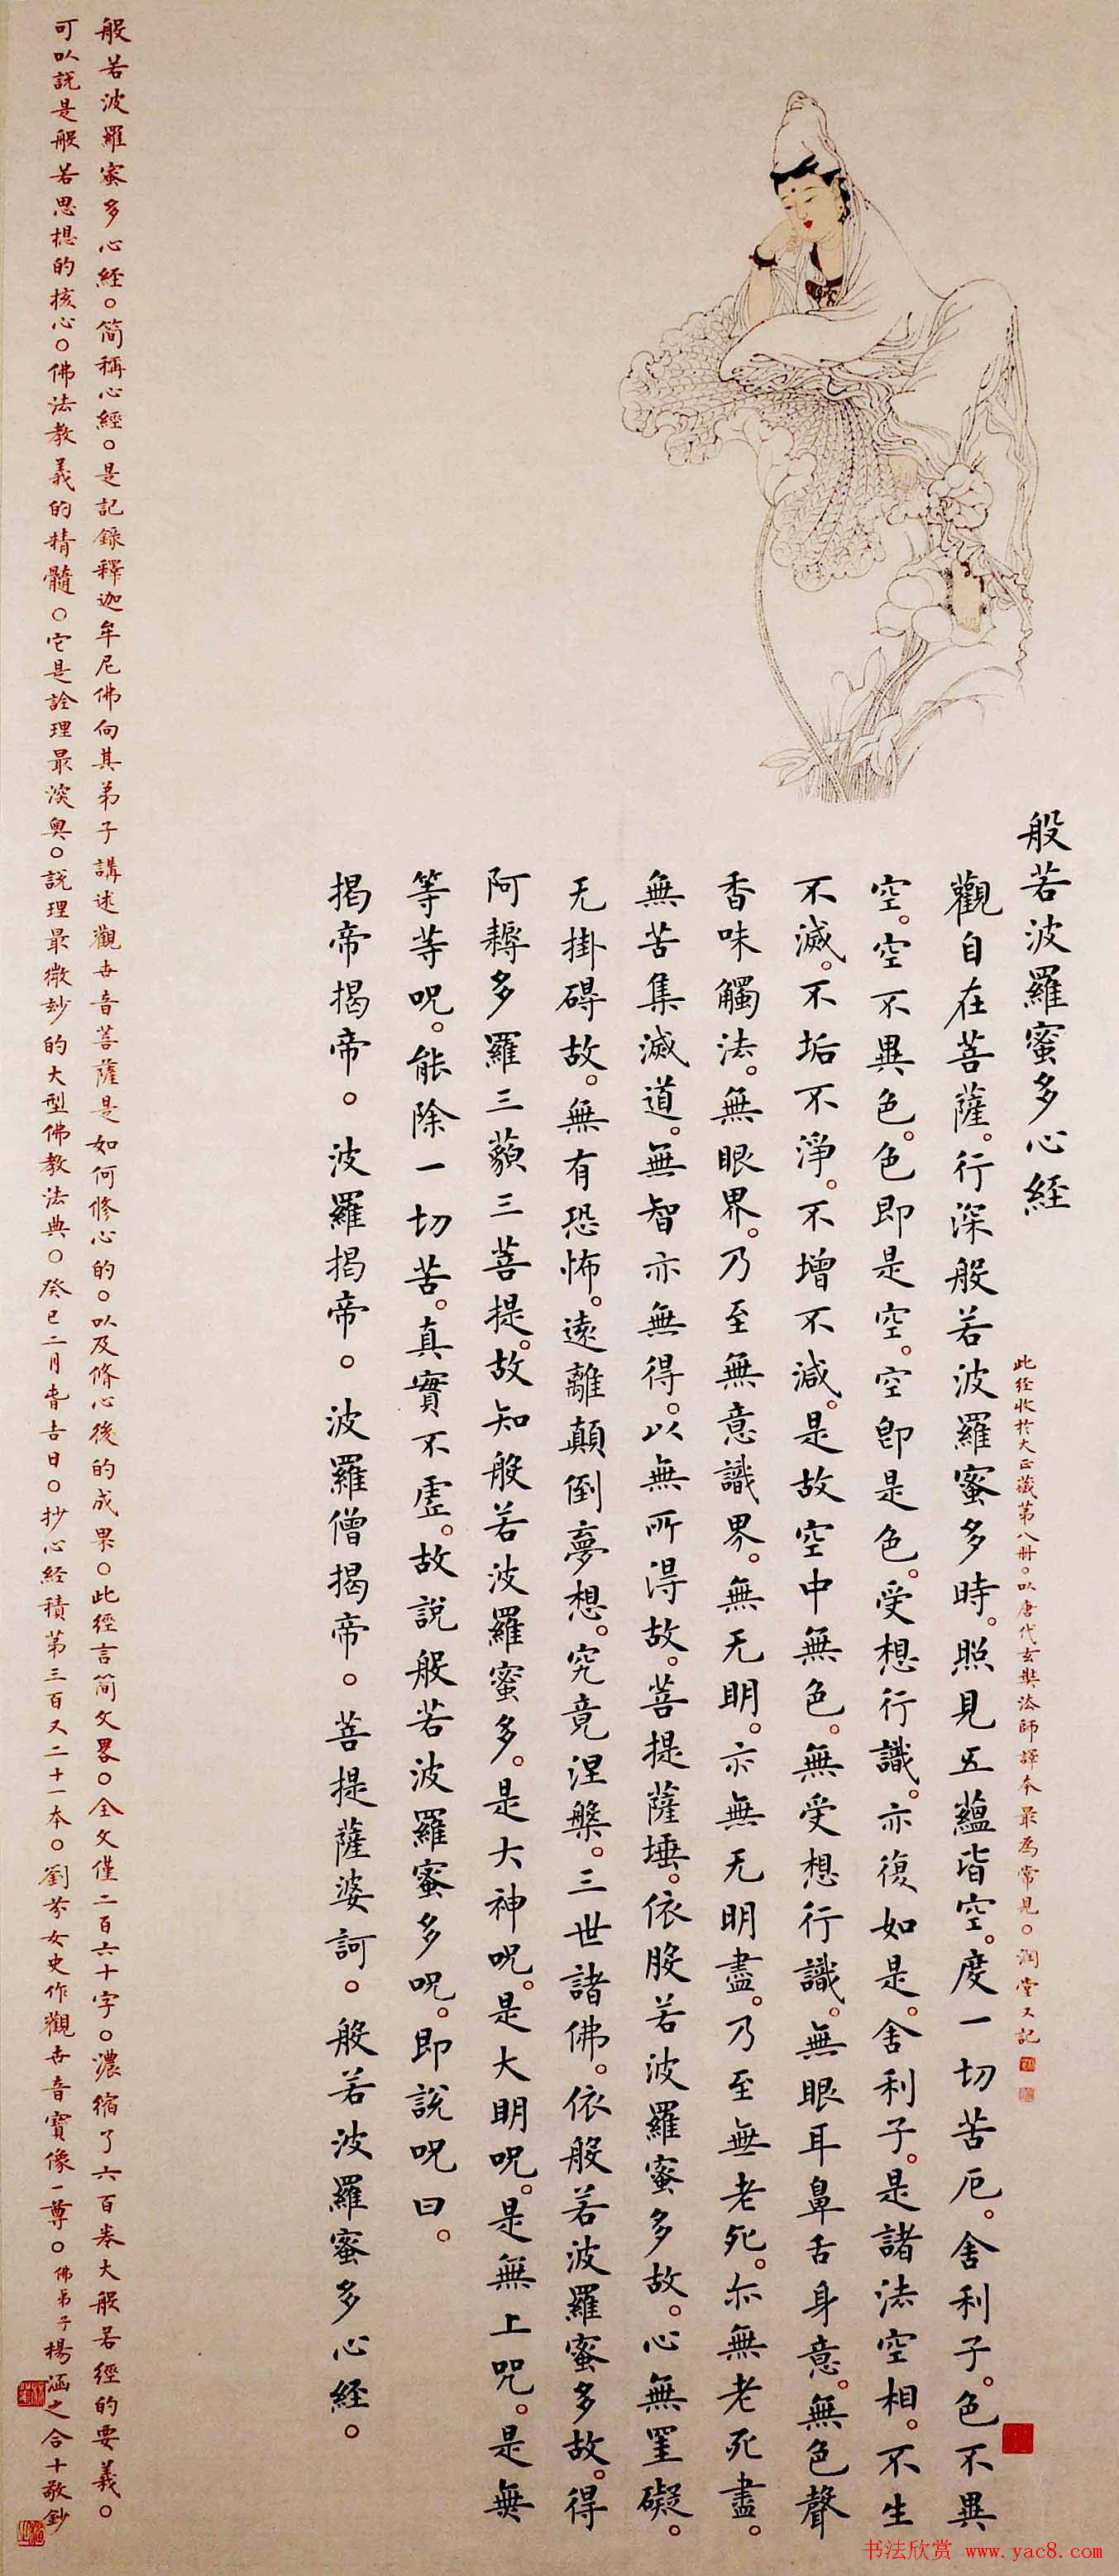 般若波羅蜜多心経
觀自在菩薩。行深般若波羅蜜多時。照見五蘊皆空。度一切苦厄。舍利子。色不異
空。空不異色。色即是空。空即是色。受想行識。亦復如是。舍利子。是諸法空相。不生
不滅。不垢不淨。不增不減。是故空中無色。無受想行識。無眼耳鼻舌身意。無色聲
香味觸法。無眼界。乃至無意識界。無无明。亦無无明盡。乃至無老死。亦無老死盡。
無苦集滅道。無智亦無得。以無所得故。菩提薩埵。依般若波羅蜜多故。心無罣礙。
无掛碍故。無有恐怖。遠離顛倒夢想。究竟涅槃。三世諸佛。依般若波羅蜜多故。得
阿耨多羅三藐三菩提。故知般若波羅蜜多。是大神呪。是大明呪。是無上呪。是無
等等呪。能除一切苦。真實不虛。故說般若波羅蜜多呪。即說呪曰。
揭帝揭帝。波羅揭帝。波羅僧揭帝。菩提薩婆訶。般若波羅蜜多心経。
此経收於大正藏第八冊。以唐代玄奘法師譯本最為常見。潤堂又記
般若波羅蜜多心經。简稱心經。是記錄釋迦牟尼佛向其弟子講述觀世音菩薩是如何修心的。以及脩心後的成果。此經言简文畧。全文僅二百六十字。濃縮了六百卷大般若經的要義。
可以說是般若思想的核心。佛法教義的精髓。它是詮理最深奥。說理最微玅的大型佛教法典。癸巳二月春吉日。抄心経積第三百又二十一本。劉芬女史作觀世音寶像一尊。佛弟子楊涵之合十敬鈔
书法欣赏 www.yac8.com